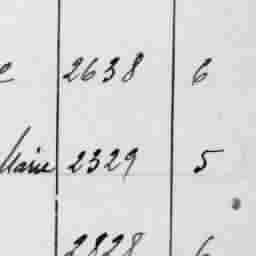 2638 6
Marie 2329 5
2828 6